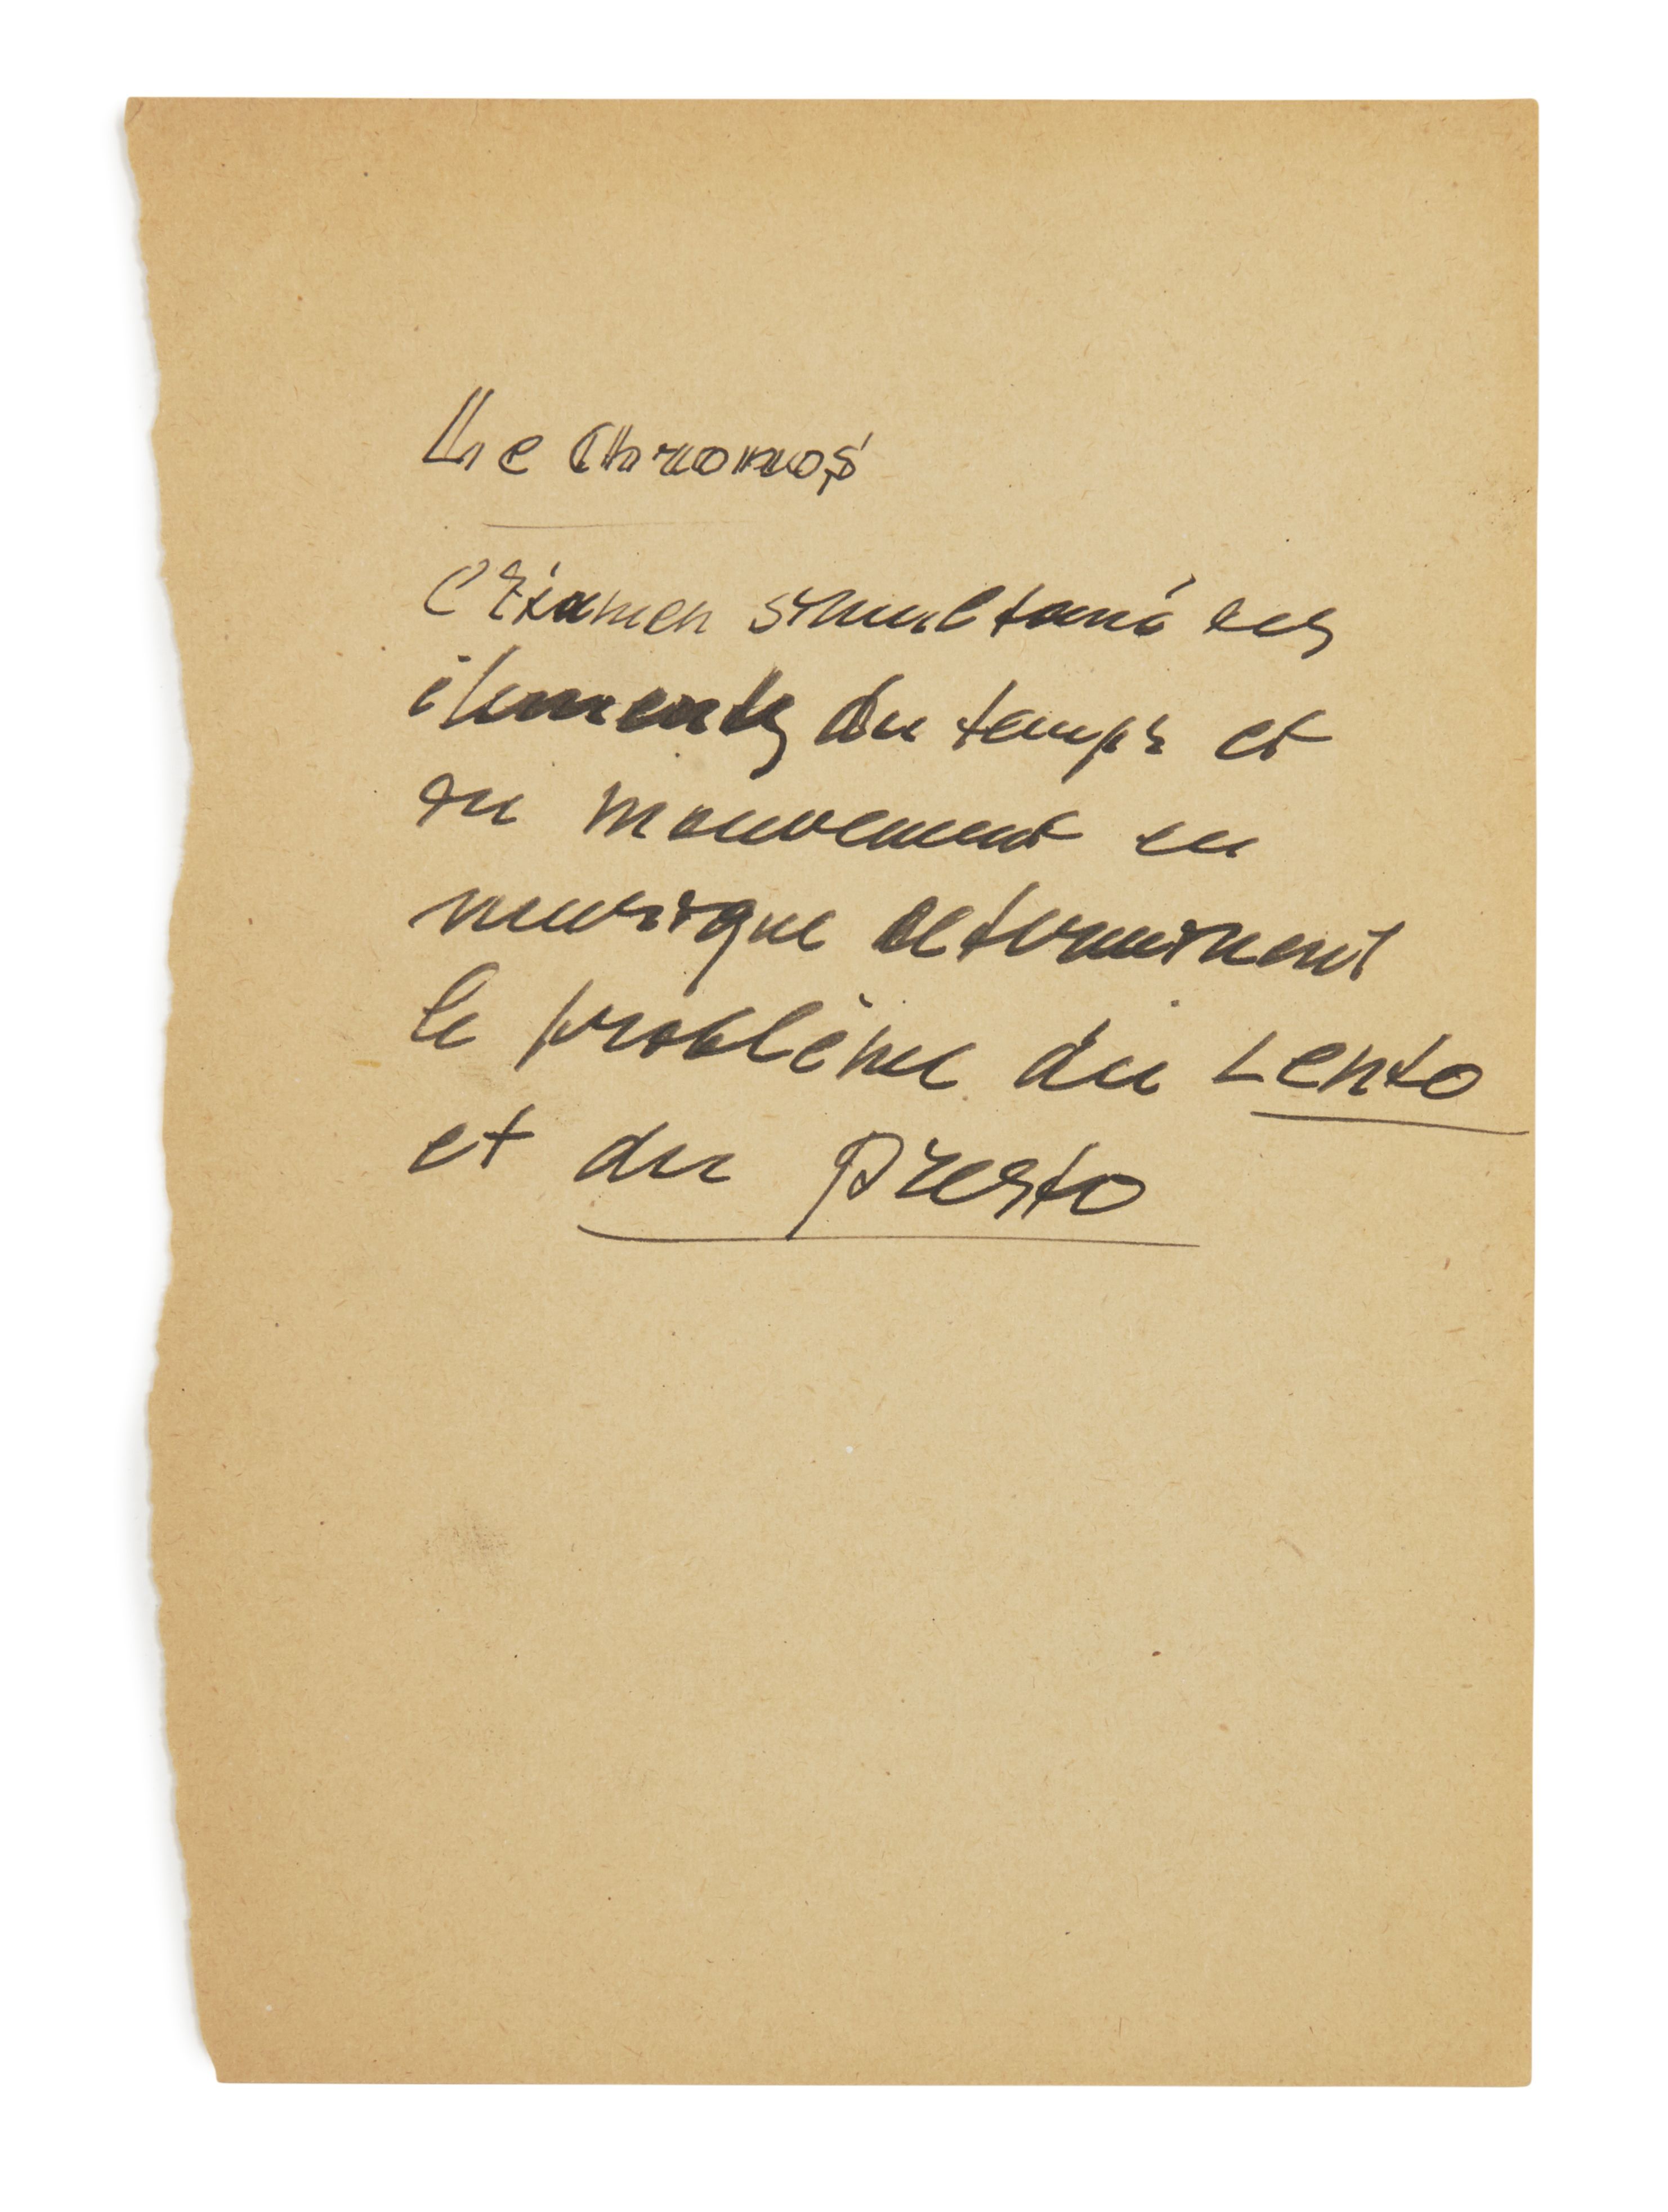 Le Chronos
l'Examen simultané des
éléments du temps et
du mouvement en
musique determinent
le problème du Lento
et du Presto